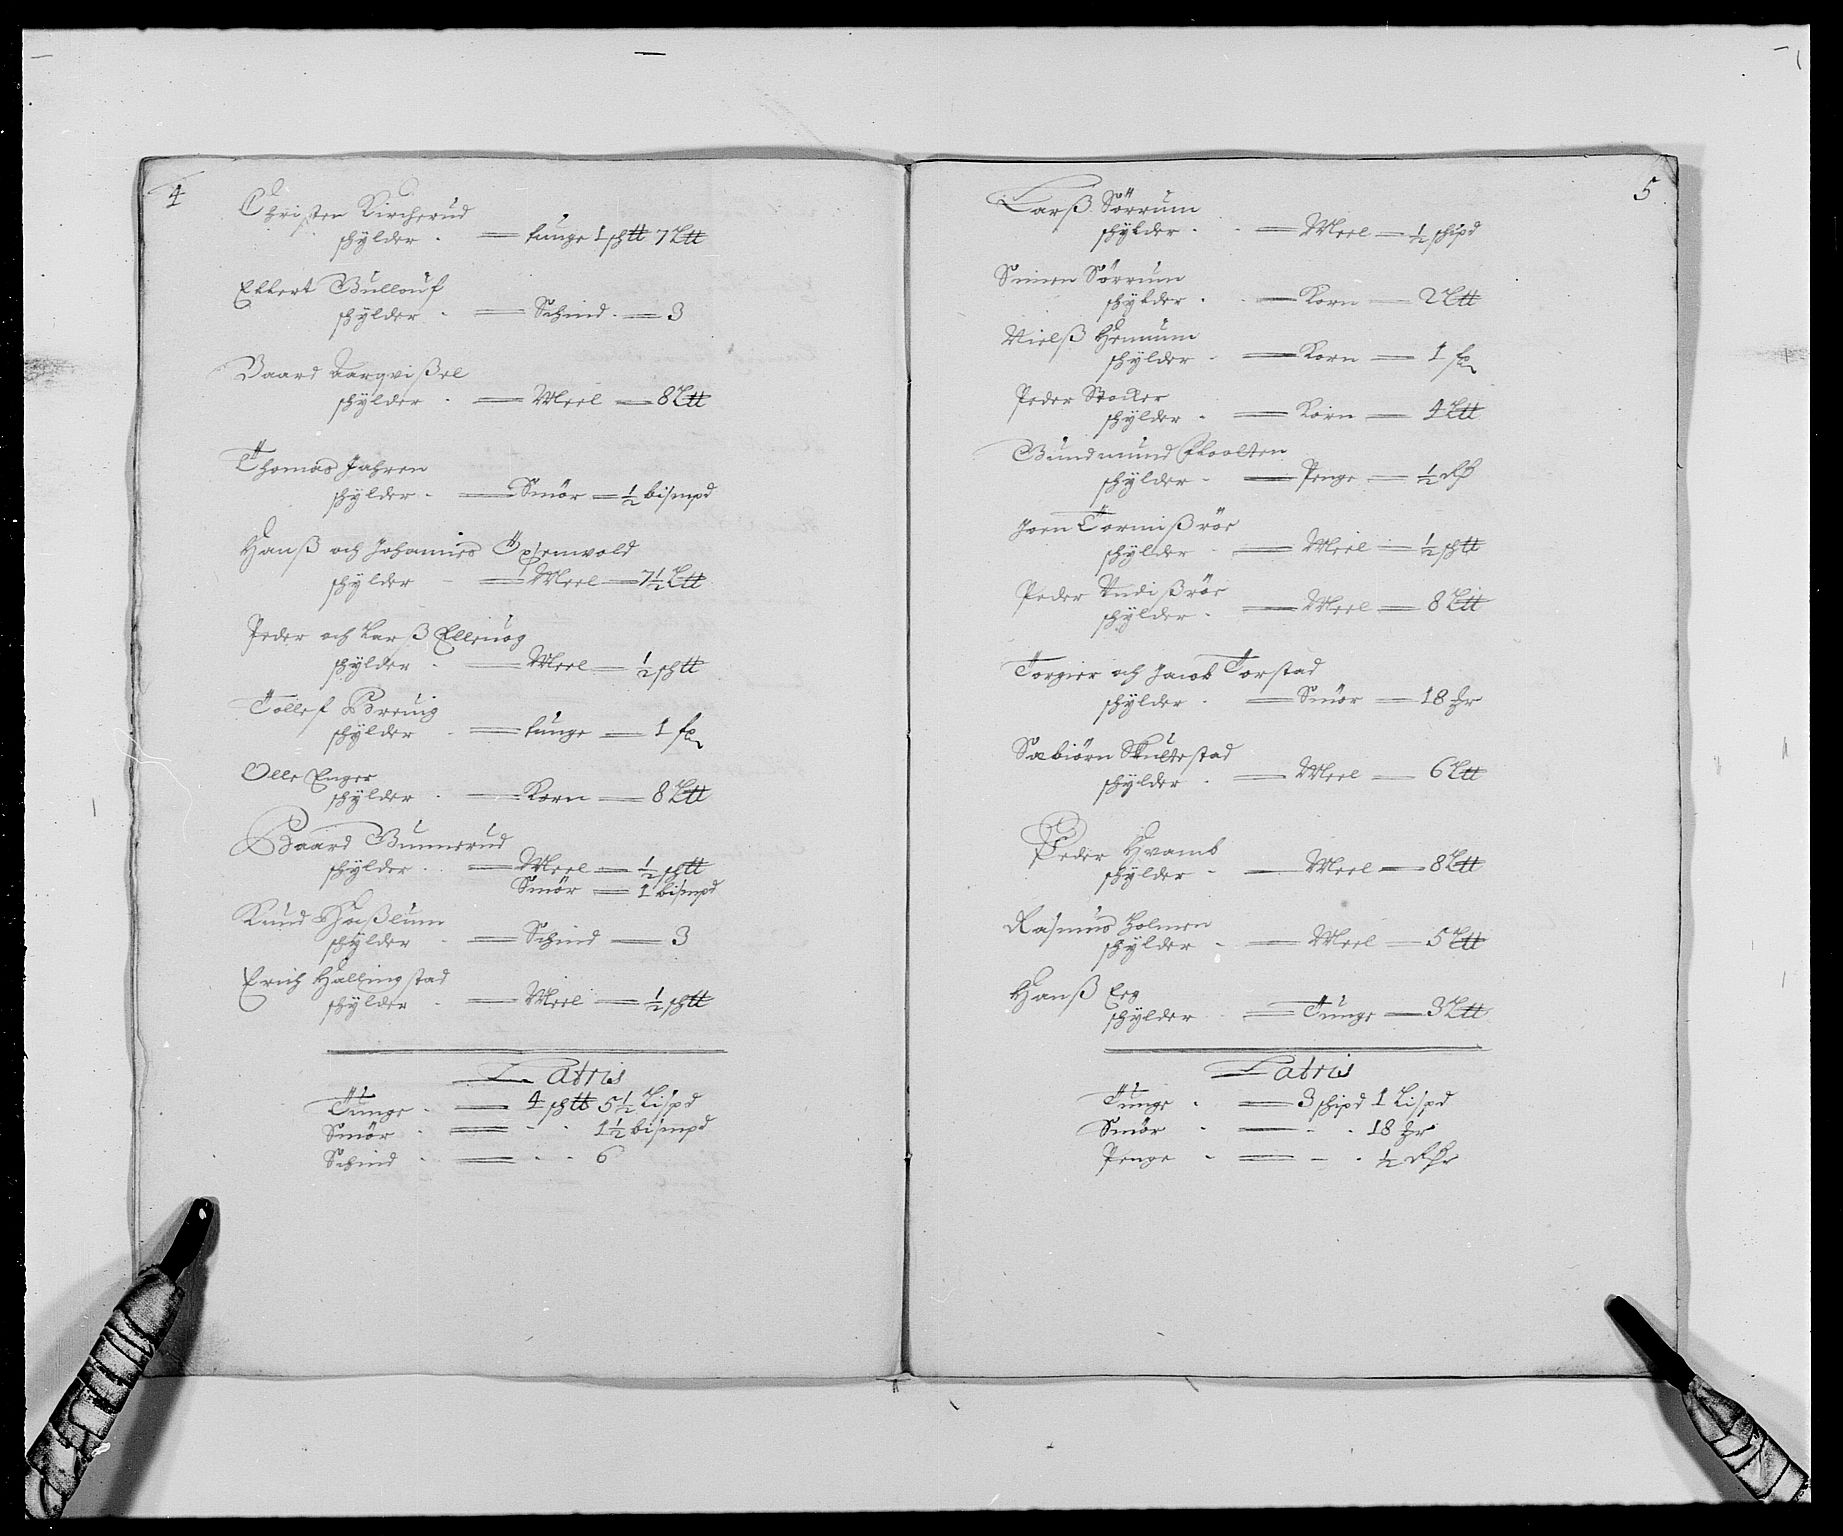 4
Christen Kircherud
schylder - tunge 1 schtt 7 Ltt
Ellert Bullouf
schylder - Schind - 3
Baard Aarqvißel
schylder - Meel - 8 Ltt
Thomas Jahren
schylder - Smör - ½ bismpd
Hanß och Johannes Opsenvold
schylder - Meel - 7½ Ltt
Peder och Larß Ellevog
schylder - Meel - ½ schtt
Tollef Brevig
schylder - tunge - 1 fr
Olle Enger
schylder - Korn - 8 Ltt
Baard Bunnerud
schylder - Meel - ½ schtt
Smör - 1 bismpd
Knud Haßlum
schylder - Schind - 3
Erich Hallingstad
schylder - Meel - ½ schtt
Latris
Tunge - 4 schtt 5½ Lispd
Smör - 1½ bismpd
Schind - 6
5
Larß Sörrum
schylder - Meel - ½ schipd
Simen Sörrum
schylder - Korn - 2 Ltt
Nielß Hemium
schylder - Korn - 1 fr
Peder Stocker
schylder - Korn - 4 Ltt
Gundmund Floolten
schylder - Penge - ½ Rß
Joen Tormißröe
schylder - Meel - ½ schtt
Peder Undißröe
schylder - Meel - 8 Ltt
Torgier och Jacob Torstad
schylder - Smör - 18 hr
Sæbiörn Skultestad
schylder - Meel - 6 Ltt
Peder Hvamb
schylder - Meel - 8 Ltt
Rasmus Holmen
schylder - Meel - 5 Ltt
Hanß Eeg
schylder - Tunge - 3 Ltt
Latris
Tunge - 3 schipd 1 Lispd
Smör - 18 hr
Penge - ½ Rdr